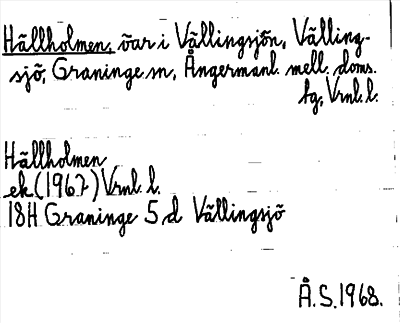 Hällholmen, öar i Vällingsjön, Välling-
sjö, Graninge sn, Ångermanl. mell. doms.
tg, Vrnl. l.
Hällholmen
ek (1967) Vrnl. l.
18H Graninge 5 d Vällingsjö
Å.S. 1968.